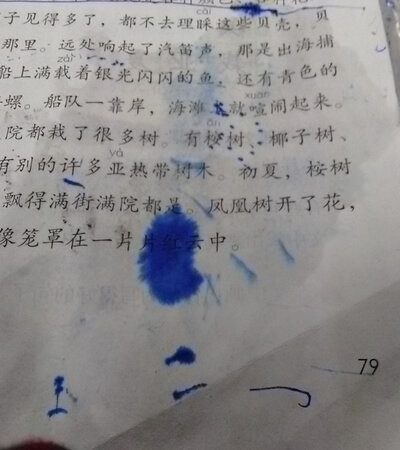 cǎi
子见得多了，都不去理睬这些贝壳，贝
那里。远处响起了汽笛声，那是出海捕
zài
船上满载着银光闪闪的鱼，还有青色的
xuān
螺。船队一靠岸，海滩上就喧闹起来。
ān
院都栽了很多树。有桉树、椰子树、
yà
有别的许多亚热带树木。初夏，桉树
飘得满街满院都是。凤凰树开了花，
像笼罩在一片片红云中。
79